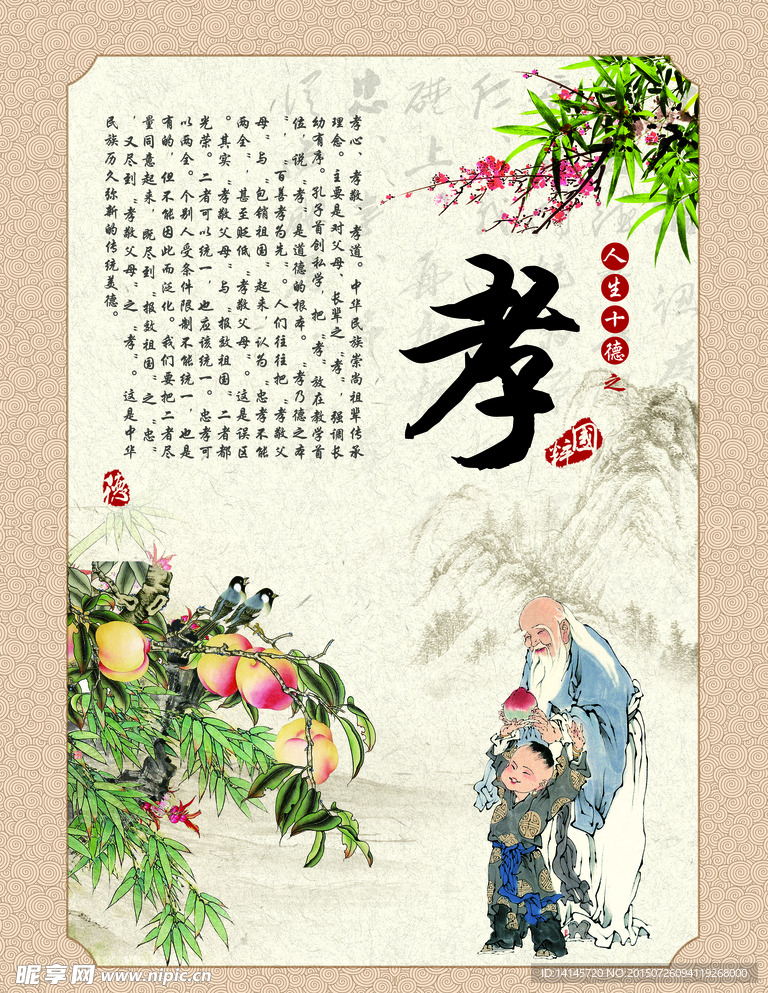 人生十德之
孝
国粹
孝心、孝敬、孝道。中华民族崇尚祖辈传承
理念。主要是对父母、长辈之“孝”，强调长
幼有序。孔子首创私学，把“孝”放在教学首
位，说“孝”是道德的根本。“孝乃德之本
”，“百善孝为先”。人们往往把“孝敬父
母”与“包销祖国”起来，认为“忠孝不能
两全”，甚至贬低“孝敬父母”。这是误区
。其实“孝敬父母”与“报效祖国”二者都
光荣。二者可以统一，也应该统一。忠孝可
以两全。个别人受条件限制不能统一，也是
有的，但不能因此而泛化。我们要把二者尽
量同意起来，既尽到“报效祖国”之“忠”
，又尽到“孝敬父母”之“孝”。这是中华
民族历久弥新的传统美德。
德
昵享网 www.nipic.cn
ID:14145720 NO:20150726094119268000